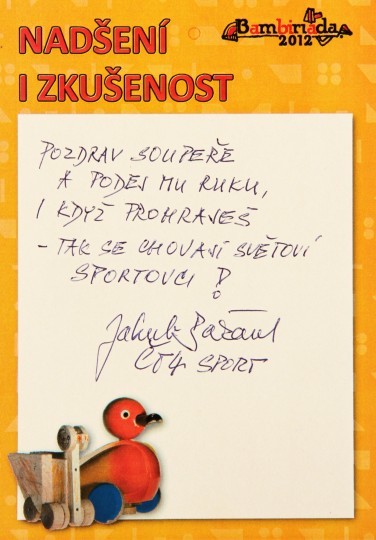 NADŠENÍ
I ZKUŠENOST
Bambiriáda
2012
POZDRAV SOUPEŘE
A PODEJ MU RUKU,
I KDYŽ PROHRAJEŠ
- TAK SE CHOVAJÍ SVĚTOVÍ
SPORTOVCI !
Jakub Bažant
ČT4 SPORT